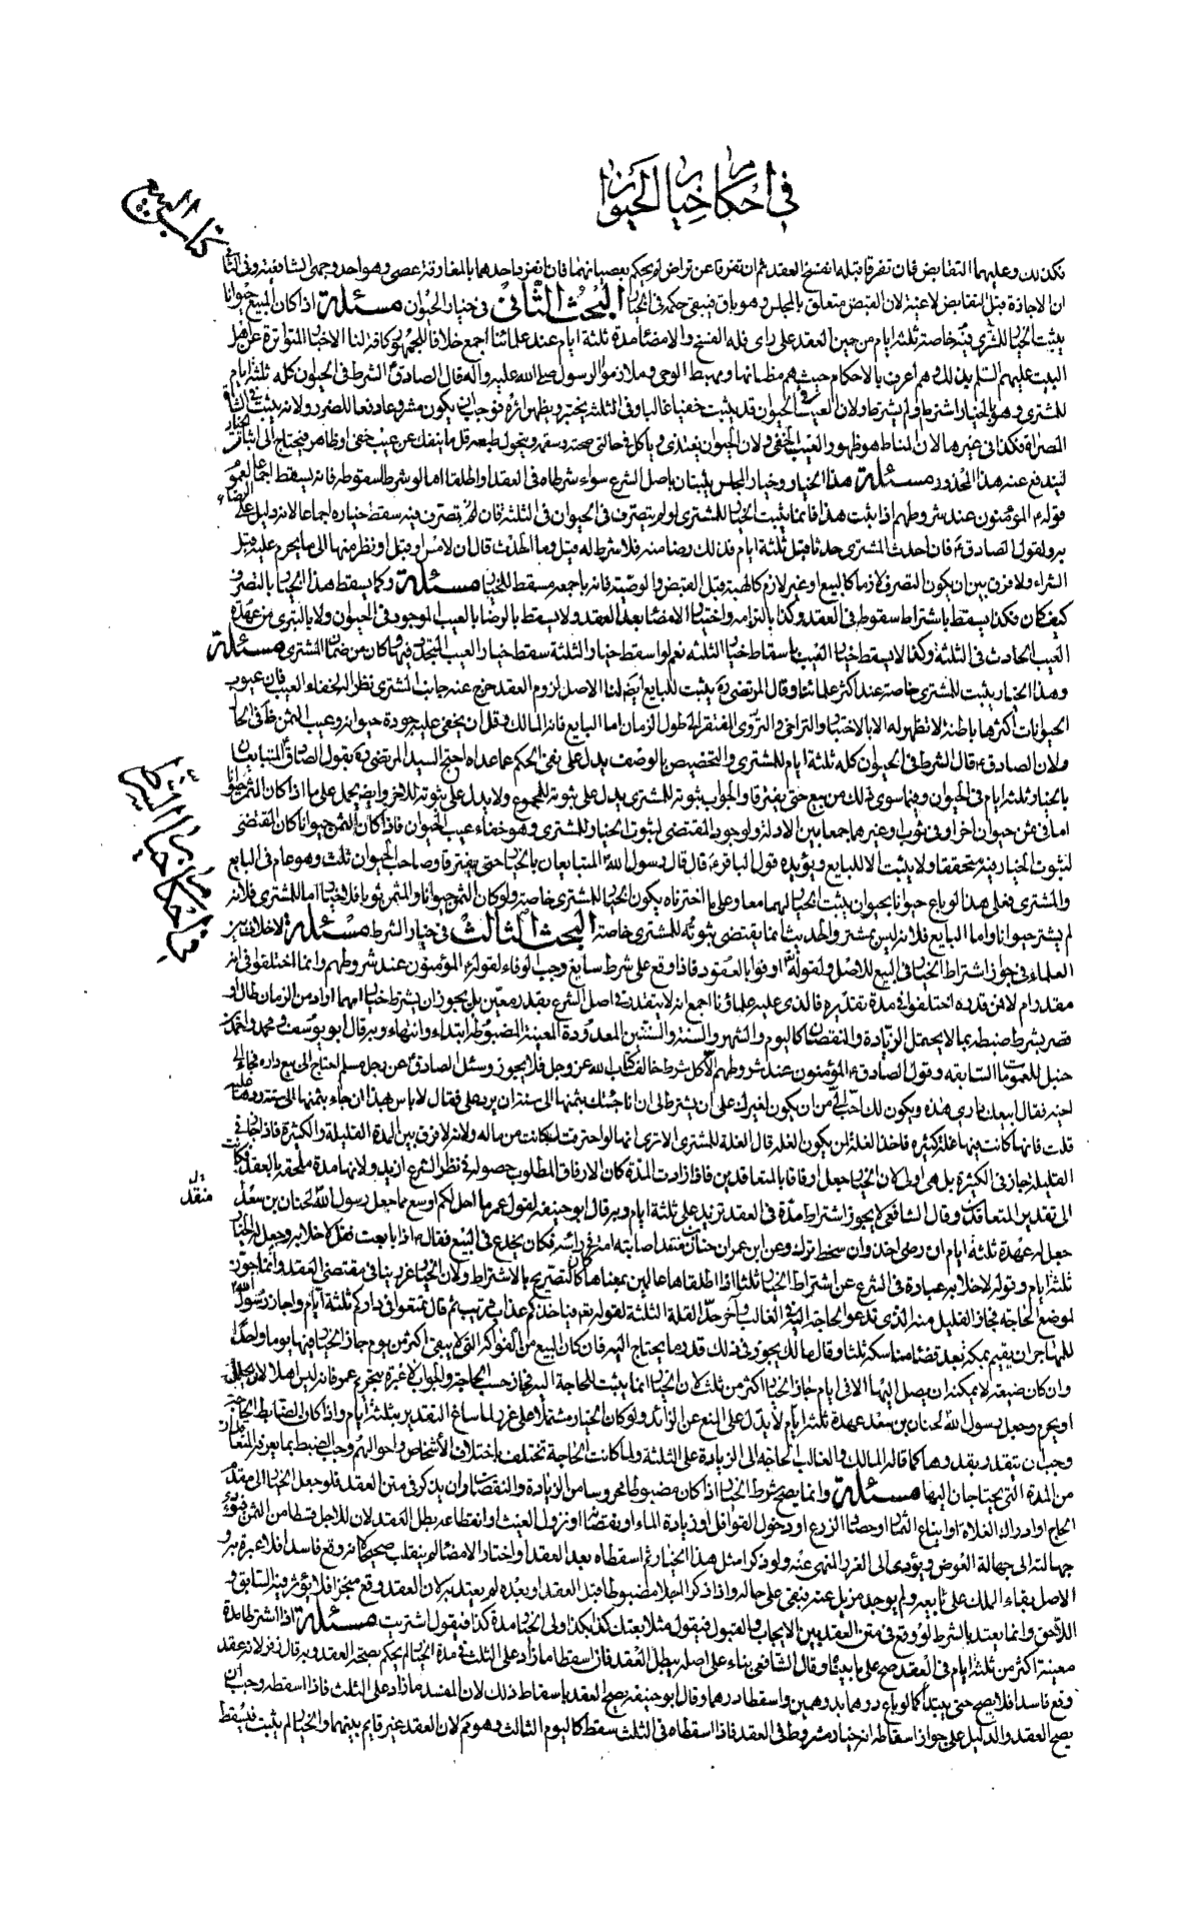 في احكام خيار الحيوان
كتاب البيع
فكذلك وعليهما التقابض فان تفرقا قبله انفسخ العقد ثم ان تفرقا عن تراض لم يحكم بعصيانهما فان انفرد احدهما بالمفارقة عصى وهو احد وجهي الشافعية وفي الثاني
ان الاجازة قبل التقابض لاغية لان القبض متعلق بالمجلس وهو باق فيبقى حكمه في الخيار البحث الثاني في خيار الحيوان مسئلة اذا كان المبيع حيوانا
يثبت الخيار للمشتري فيه خاصة ثلثة ايام من حين العقد على راى فله الفسخ والامضاء مدة ثلثة ايام عند علمائنا اجمع خلافا للجمهور كافة لنا الاخبار المتواترة عن اهل
البيت عليهم السلم بذلك وهم اعرف بالاحكام حيث هم مظانها ومهبط الوحي وملازموا الرسول صلى الله عليه وآله قال الصادق ع الشرط في الحيوان كله ثلثة ايام
للمشتري وهو بالخيار اشترط او لم يشترط ولان العيب في الحيوان قد يثبت خفيا غالبا وفي الثلثة يختبر ويظهر اثره فوجب ان يكون مشروعا دفعا للضرر ولانه يثبت في الشاة
المصراة فكذا في غيرها لان المناط هو ظهور العيب الخفي ولان الحيوان يغتذى وياكل في حالتي صحته وسقمه ويتحول طبعه قل ما ينفك عن عيب خفي او ظاهر فيحتاج الى اثبات خيار
ليندفع عنه هذا المحذور مسئلة هذا الخيار وخيار المجلس يثبتان باصل الشرع سواء شرطاه في العقد او اطلقا اما لو شرط السقوط فانه يسقط اجماعا لعموم
قوله ع المؤمنون عند شروطهم اذا ثبت هذا فانما يثبت الخيار للمشتري لو لم يتصرف في الحيوان في الثلثة فان تصرف فيه سقط خياره اجماعا لانه دليل على الرضاء
به ولقول الصادق ع فان احدث المشتري حدثا قبل ثلثة ايام فذلك رضا منه فلا شرط له قيل وما الحدث قال ان لامس او قبل او نظر منها الى ما يحرم عليه قبل
الشراء ولا فرق بين ان يكون التصرف لازما كالبيع او غير لازم كالهبة قبل القبض والوصية فانه باجمعه مسقط للخيار مسئلة وكما يسقط هذا الخيار بالتصرف
كيف كان فكذا يسقط باشتراط سقوطه في العقد وكذا بالتزامه واختيار الامضاء بعد العقد ولا يسقط بالرضا بالعيب الموجود في الحيوان ولا بالتبري من عهدة
العيب الحادث في الثلثة وكذا لا يسقط خيار العيب باسقاط خيار الثلثة نعم لو اسقط خيار الثلثة سقط خيار العيب المتجدد فيها وكان من ضمان المشتري مسئلة
وهذا الخيار يثبت للمشتري خاصة عند اكثر علمائنا وقال المرتضى ره يثبت للبايع ايضا لنا الاصل لزوم العقد خرج عنه جانب المشتري نظرا الى خفاء العيب فان عيوب
الحيوانات اكثرها باطنة لا تظهر له الا بالاختبار والتراخي والتروى المفتقر الى طول الزمان اما البايع فانه المالك وقل ان يخفى عليه جودة حيوانه وعيب الثمن ظ في الحال
ولان الصادق ع قال الشرط في الحيوان كله ثلثة ايام للمشتري والتخصيص بالوصف يدل على نفي الحكم عما عداه احتج السيد المرتضى ره بقول الصادق ع المتبايعان
بالخيار ثلثة ايام في الحيوان وفيما سوى ذلك من بيع حتى يفترقا والجواب ثبوته للمشتري يدل على ثبوته للمجموع ولا يدل على ثبوته للاخر وايضا يحمل على ما اذا كان الثمن حيوانا
اما في عين حيوان اخر او في ثوب وغيرهما جمعا بين الادلة ولوجود المقتضي لثبوت الخيار للمشتري وهو خفاء عيب الحيوان فاذا كان الثمن حيوانا كان المقتضي
لثبوت الخيار فيه متحققا ولا يثبت الا للبايع ويؤيده قول الباقر ع قال قال رسول الله ص المتبايعان بالخيار حتى يفترقا وصاحب الحيوان ثلث وهو عام في البايع
والمشتري فعلى هذا لو باع حيوانا بحيوان يثبت الخيار لهما معا وعلى ما اخترناه يكون الخيار للمشتري خاصة ولو كان الثمن حيوانا والمثمن ثوبا فلا خيار اما للمشتري فلانه
لم يشتر حيوانا واما البايع فلانه ليس بمشتر والحديث انما يقتضي ثبوته للمشتري خاصة البحث الثالث في خيار الشرط مسئلة لا خلاف بين
العلماء في جواز اشتراط الخيار في البيع للاصل ولقوله تع اوفوا بالعقود فاذا وقع على شرط سايغ وجب الوفاء لقوله ع المؤمنون عند شروطهم وانما اختلفوا في انه
مقدر ام لا ومن قدره اختلفوا في مدة تقديره فالذي عليه علماؤنا اجمع انه لا يتقدر في اصل الشرع بقدر معين بل يجوز ان يشترط خيار ايهما اراد من الزمان طال او
قصر بشرط ضبطه بما لا يحتمل الزيادة والنقصان كاليوم والشهر والسنة والسنتين المعدودة المعينة المضبوطة ابتداء وانتهاء وبه قال ابو يوسف ومحمد واحمد بن
حنبل للعمومات السابقة وقول الصادق ع المؤمنون عند شروطهم الا كل شرط خالف كتاب الله عز وجل فلا يجوز وسئل الصادق ع عن رجل مسلم احتاج الى بيع داره فجاء الى
اخيه فقال ابيعك داري هذه ويكون لك احب الي من ان يكون لغيرك على ان يشترط لي ان انا جئتك بثمنها الى سنة ان يرد على فقال لا باس بهذا ان جاء بثمنها الى سنة ردها عليه
قلت فانها كانت فيها غلة كثيرة فاخذ الغلة لمن يكون الغلة قال الغلة للمشتري الا ترى انها لو احترقت لكانت من ماله ولانه لا فرق بين المدة القليلة والكثيرة فاذا جاز في
القليلة جاز في الكثيرة بل هي اولى لان الخيار جعل ارفاقا بالمتعاقدين فاذا زادت المدة كان الارفاق المطلوب حصوله في نظر الشرع ازيد ولانها مدة ملحقة بالعقد فكانت
الى تقدير المتعاقدين وقال الشافعي لا يجوز اشتراط مدة في العقد تزيد على ثلثة ايام وبه قال ابو حنيفة لقول عمر ما اجد لكم اوسع مما جعل رسول الله لحبان بن سعد
جعل له عهدة ثلثة ايام ان رضي اخذ وان سخط ترك وعن ابن عمر ان حبان بن منقذ اصابته آمة في راسه فكان يخدع في البيع فقال ع اذا بايعت فقل لا خلابة وجعل له الخيار
ثلثة ايام وقوله لا خلابة عبارة في الشرع عن اشتراط الخيار ثلثا اذا اطلقاها عالمين بمعناها كان كالتصريح بالاشتراط ولان الخيار غرر ينافي مقتضى العقد وانما جوز
لموضع الحاجة فجاز القليل منه الذي تدعو الحاجة اليه في الغالب وآخر حد القلة الثلثة لقوله تع فياخذكم عذاب قريب ثم قال تمتعوا في داركم ثلثة ايام واجاز رسول الله ص
للمهاجر ان يقيم بمكة بعد قضاء مناسكه ثلثا وقال مالك يجوز في ذلك قدر ما يحتاج اليه فان كان المبيع من الفواكه التي لا يبقى اكثر من يوم جاز الخيار فيها يوما واحدا
وان كان ضيعة لا يمكنه ان يصل اليها الا في ايام جاز الخيار اكثر من ثلث لان الخيار انما يثبت للحاجة اليه فجاز حسب الحاجة والجواب لا عبرة بتجريح عمر فانه ليس اهلا لان يحلل
او يحرم وجعل رسول الله لحبان بن سعد عهدة ثلثة ايام لا يدل على المنع عن الزائد ولو كان الخيار مشتملا على غرر لما ساغ التقدير بثلثة ايام واذا كان الضابط الحاجة
وجب ان يتقدر بقدرها كما قاله المالك والغالب الحاجة الى الزيادة على الثلثة ولما كانت الحاجة تختلف باختلاف الاشخاص واحوالهم وجب الضبط بما يعرفه المتعاقدان
من المدة التي يحتاجان اليها مسئلة وانما يصح شرط الخيار اذا كان مضبوطا محروسا من الزيادة والنقصان وان يذكر في متن العقد فلو جعل الخيار الى مقدم
الحاج او ادراك الغلات او ايناع الثمار او حصاد الزرع او دخول القوافل او زيادة الماء او نقصه او نزول الغيث او انقطاعه بطل العقد لان للاجل قسطا من الثمن فيؤدي
جهالته الى جهالة العوض ويؤدي الى الغرر المنهى عنه ولو ذكرا مثل هذا الخيار ثم اسقطاه بعد العقد او اختارا الامضاء لم ينقلب صحيحا لانه وقع فاسدا فلا عبرة به و
الاصل بقاء الملك على بايعه ولم يوجد مزيل عنه فبقي على حاله واذا ذكرا اجلا مضبوطا قبل العقد او بعده لم يعتد به لان العقد وقع منجزا فلا يؤثر فيه السابق و
اللاحق وانما يعتد بالشرط لو وقع في متن العقد بين الايجاب والقبول فيقول مثلا بعتك كذا بكذا ولي الخيار مدة كذا فيقول اشتريت مسئلة اذا اشترطا مدة
معينة اكثر من ثلثة ايام في العقد صح على ما بيناه وقال الشافعي بناء على اصله يبطل العقد فان اسقطا ما زاد على الثلث في مدة الخيار لم يحكم بصحة العقد وبه قال زفر لانه عقد
وقع فاسدا فلا يصح حتى يبتدأ كما لو باع درهما بدرهمين واسقطا درهما وقال ابو حنيفة يصح العقد باسقاط ذلك لان المفسد ما زاد على الثلث فاذا اسقطه وجب ان
يصح العقد والدليل على جواز اسقاطه انه خيار مشروط في العقد فاذا اسقطاه في الثلث سقط كاليوم الثالث وهو مم لان العقد غير قايم بينهما والخيار لم يثبت فيسقط
في احكام خيار الشرط
منقذ